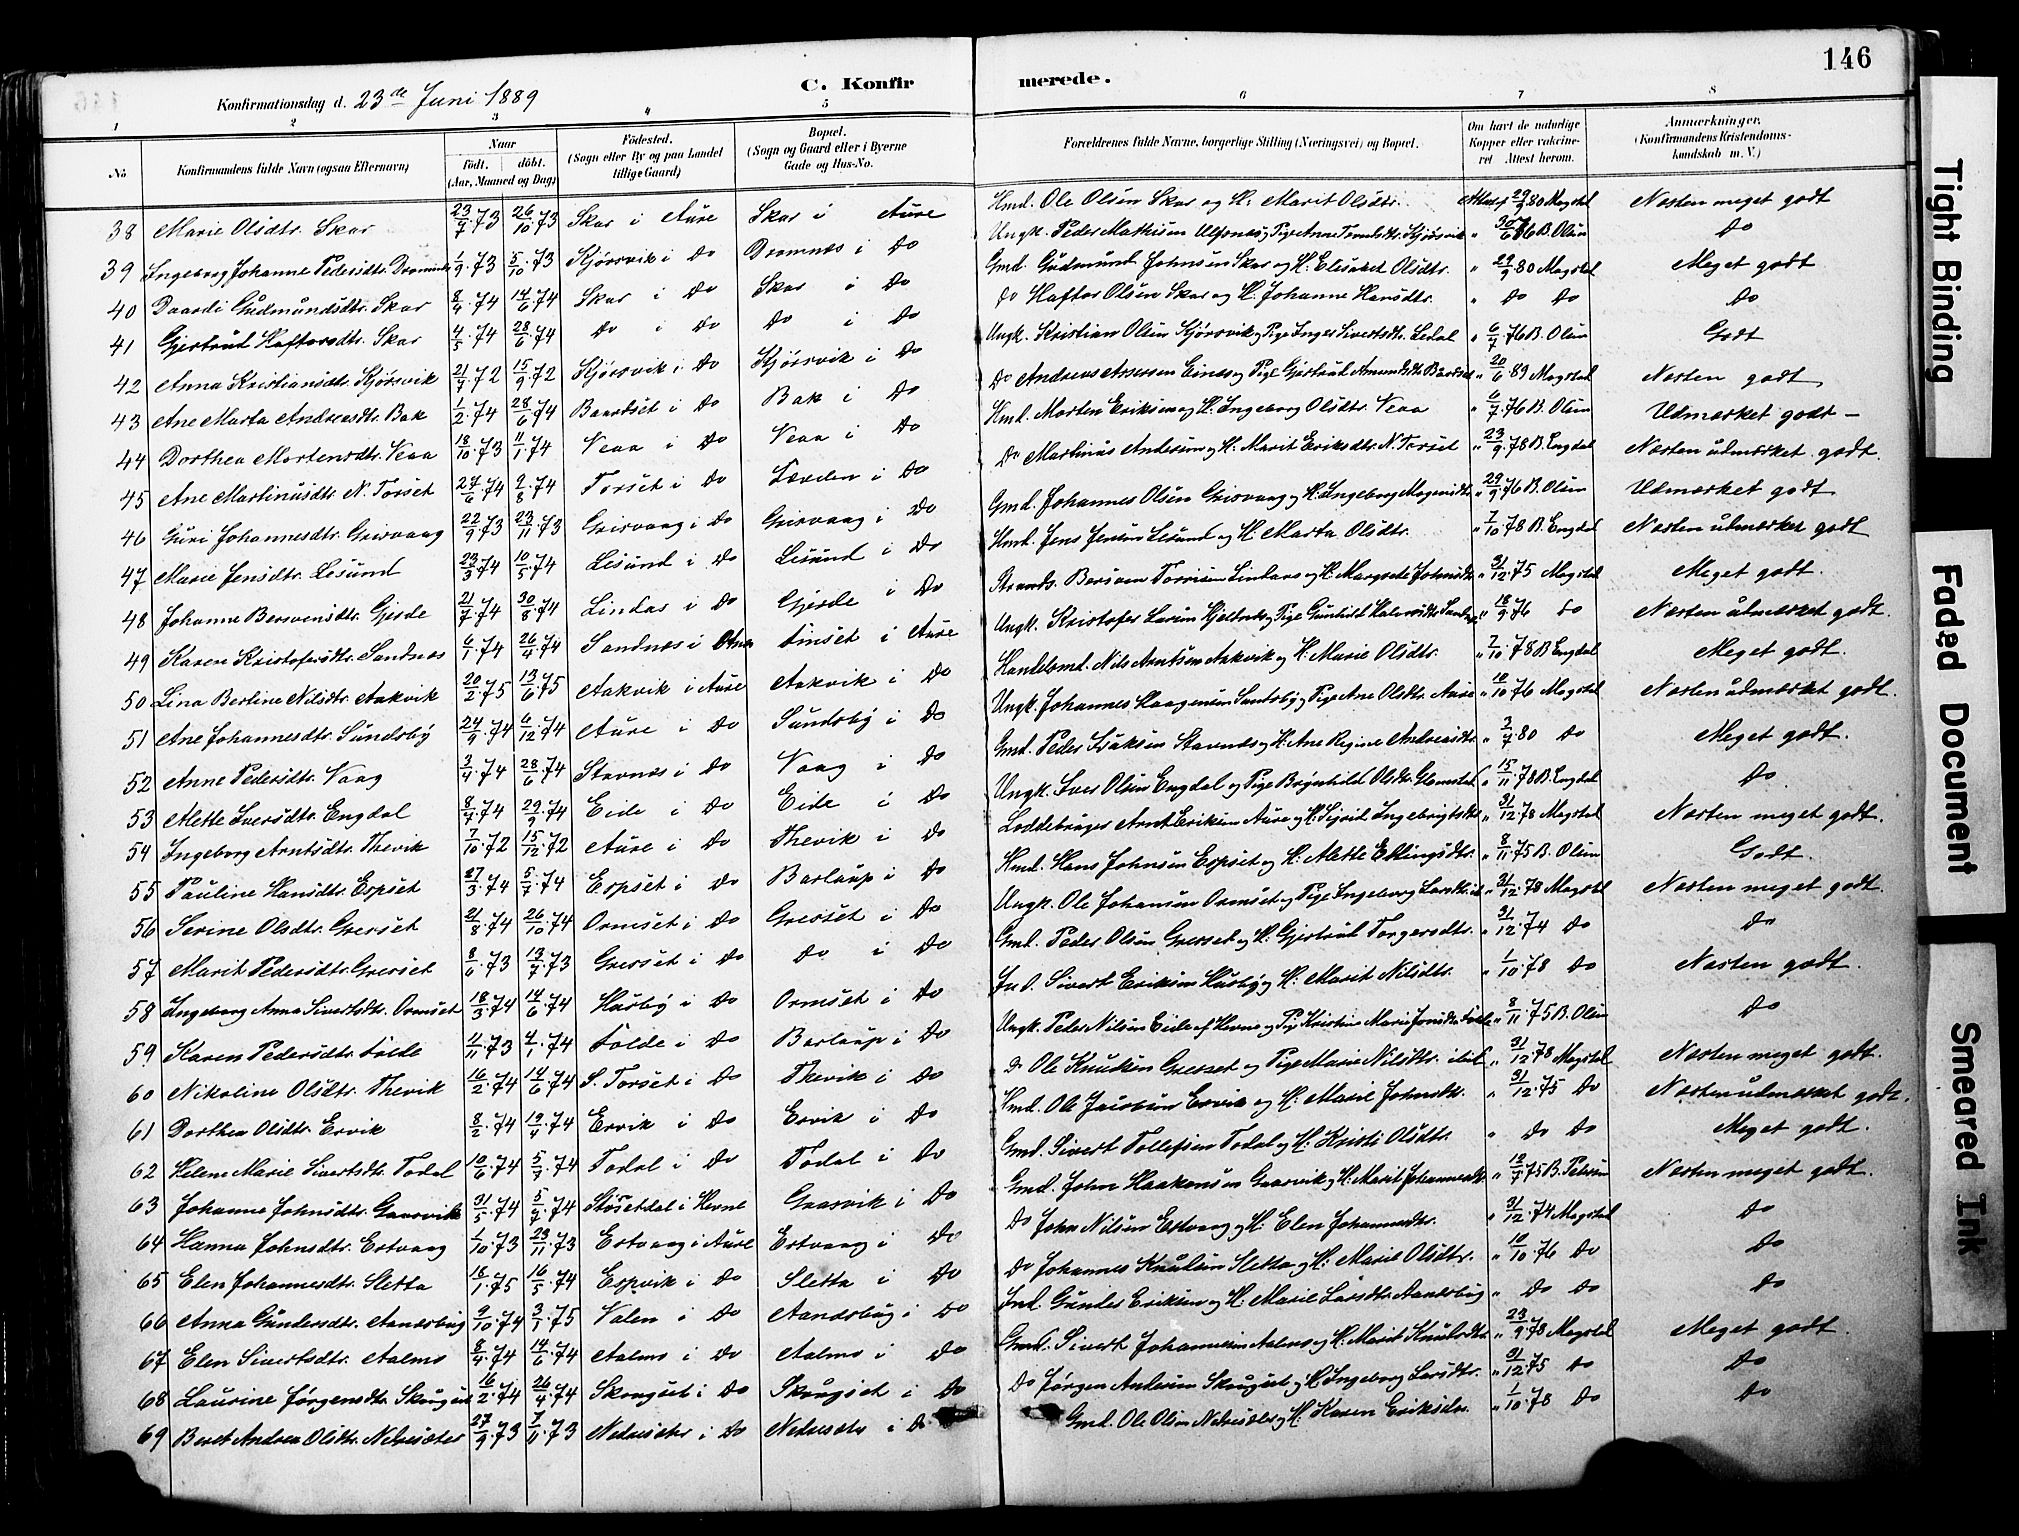 146
C. Konfirmerede.
Konfirmationsdag d. 23de Juni 1889
1 2 3 4 5 6 7 8
No
Konfirmandens fulde Navn (ogsaa Efternavn)
Naar födt. döbt. (Aar, Maaned og Dag)
Födested. (Sogn eller By og paa Landet tillige Gaard)
Bopæl. (Sogn og Gaard eller i Byerne Gade og Hus-No.
Forældrenes fulde Navne, borgerlige Stilling (Næringsvei) og Bopæl.
Om havt de naturlige Kopper eller vaccineret Attest herom.
Anmærkninger. (Konfirmandens Kristendomskundskab m. V.)
38 Marie Olsdtr. Skar 23/7 .73 26/10 .73 Skar i Aure Skar i Aure Hmd. Ole Olsen Skar og H. Marit Olsdtr. Attest 29/9 80 Magstal Næsten meget godt
39 Ingeborg Johanne Pedersdtr. 1/9 .73 5/10 .73 Kjørsvik i Do Dromnæs i Do Ungk. Peder Mathisen B. Olsen Do
40 Daardi Gudmundsdtr. Skar 8/4 .74 14/6 .74 Skar i Do Skar i Do Gmd. Gudmund Johnsen Skar og H. Elisabet Olsdtr. " 29/9 80 Magstal Meget godt
41 Gjertrud Haftorsdtr. Skar 4/5 .74 28/6 .74 Do i Do Do i Do Do Haftor Olsen Skar og H. Johanne Hansdtr. " Do Do Do
42 Anna Kristiansdtr. Kjørsvik 21/7 .72 15/9 .72 Kjørsvik i Do Kjørsvik i Do Ungk. Kristian Olsen Kjørsvik og Pige Inger Sivertsdtr. " 6/7 .76 B. Olsen Godt
43 Ane Marta Andreasdtr. Bak 1/2 .74 28/6 .74 Baardset i Do Bak i Do Do Andreas og Pige Gjertrud Amundsdtr. " 20/6 83 Magstal Næsten godt
44 Dorthea Mortensdtr. Veaa 18/10 .73 11/1 .74 Veaa i Do Veaa i Do Hmd. Morten Eriksen og H. Ingeborg Olsdtr. Veaa " 6/7 .76 B. Olsen Udmærket godt -
45 Ane Martinusdtr. N. Torset 27/6 .74 2/8 .74 Torset i Do i Do Do Martinus Andersen og H. Marit Eriksdtr. N. Torset " 23/9 .78 B. Engdal Næsten udmærket godt.
46 Guri Johannesdtr. Grisvaag 22/9 .73 23/11 .73 Grisvaag i Do Grisvaag i Do Gmd. Johannes Olsen Grisvaag og H. Ingeborg " 29/9 .76 B. Olsen Udmærket godt
47 Marie Jensdtr. Lesund 22/3 .74 10/5 .74 Lesund i Do Lesund i Do Hmd. Jens Jensen Lesund og H. Marta Olsdtr. " 7/10 .78 B. Engdal Næsten udmærket godt
48 Johanne Bersvensdtr. Gjerde 21/7 .74 30/8 .74 Lindaas i Do Gjerde i Do Strands. Bersven og H. Margrete Johnsdtr. " 31/12 .75 Magstal Meget godt.
49 Karen Kristofersdtr. Sandnæs 6/1 .74 26/4 .74 Sandnæs i i Aure Ungk. Kristofer og Pige Gunhild " 18/9 .76 Do Næsten udmærket godt.
50 Lina Berline Nilsdtr. Aakvik 20/2 .75 13/6 .75 Aakvik i Aure Aakvik i Do Handelsmd. Nils Arntsen Aakvik og H. Marie Olsdtr. " 7/10 .78 B. Engdal Meget godt.
51 Ane Johannesdtr. Sundsby 24/9 .74 6/12 .74 Aure i Do Sundsby i Do Ungk. Johannes Haagensen Sundsby og Pige Ane Olsdtr. Aure " 10/10 .76 Magstal Næsten udmærket godt.
52 Anne Pedersdtr. Vaag 3/4 .74 28/6 .74 Stavnæs i Do Vaag i Do Gmd. Peder Isaksen Stavnæs og H. Ane Regine Andreasdtr. " 2/7 .80 Do Meget godt.
53 Mette Iversdtr. Engdal 8/7 .74 29/9 .74 Eide i Do Eide i Do Ungk. Iver Olsen Engdal og Pige Brynhild Olsdtr. " 15/11 .78 B. Engdal Do
54 Ingeborg Arntsdtr. Thevik 7/10 .72 15/12 .72 Aure i Do Thevik i Do Loddebruger Arnt Eriksen Aure og H. Sigrid Ingebrigtsdtr. " 31/12 .78 Magstal Næsten meget godt.
55 Pauline Hansdtr. Espset 27/3 .74 5/7 .74 Espset i Do Barlaup i Do Hmd. Hans Johnsen Espset og H. Mette Ellingsdtr. " 8/11 .75 B. Olsen Godt.
56 Serine Olsdtr. Gresset 21/8 .74 26/10 .74 Ormset i Do Gresset i Do Ungk. Ole Johansen Ormset og Pige Ingeborg " 31/12 .78 Magstal Næsten meget godt.
57 Marit Pedersdtr. Gresset 8/6 .73 13/7 .73 Gresset i Do Do i Do Gmd. Peder Olsen Gresset og H. Gjertrud Torgersdtr. " 31/12 .74 Do Do
58 Ingeborg Anna Sivertsdtr. Ormset 18/3 .74 14/6 .74 Husby i Do Ormset i Do Ind. Sivert Eriksen Husby og H. Marit Nilsdtr. " 1/10 .78 Do Næsten godt.
59 Karen Pedersdtr. Folde 11/11 .73 4/1 .74 Folde i Do Barlaup i Do Ungk. Peder Nilsen Eide af Hevne og Pige Kristine Marie " 8/11 .75 B. Olsen Do
60 Nikoline Olsdtr. Thevik 16/2 .74 14/6 .74 S. Torset i Do Thevik i Do Do Ole Knudsen Gresset og Pige Marie Nilsdtr. ibid " 31/12 .78 Magstal Næsten meget godt.
61 Dorthea Olsdtr. Ervik 8/2 .74 19/4 .74 Ervik i Do Ervik i Do Hmd. Ole Jacobsen Ervik og H. Marie Johnsdtr. " 31/12 .75 Do Næsten udmærket godt.
62 Helene Marie Sivertsdtr. Todal 10/6 .74 5/7 .74 Todal i Do Todal i Do Gmd. Sivert Tollefsen Todal og H. Kristi Olsdtr. " Do Do Meget godt.
63 Johanne Johnsdtr. Gaasvik 31/5 .74 5/7 .74 Støsetdal i Hevne Grasvik i Do Gmd. John Haakonsen og H. Marit Johannesdtr. " 19/7 .75 B. Petersen Næsten meget godt.
64 Hanna Johnsdtr. Ertvaag 1/10 .73 23/11 .73 Ertvaag i Aure Ertvaag i Do Do John Nilsen Ertvaag og H. Elen Johannesdtr. " 31/12 .74 Magstal Do
65 Elen Johannesdtr. Sletta 18/1 .75 16/5 .74 Espvik i Do Sletta i Do Do Johannes Knudsen Sletta og H. Marie Olsdtr. " 10/10 .76 Do Do
66 Anna Gundersdtr. Aandsbug 9/10 .74 3/1 .75 Valen i Do Aandsbug i Do Ind. Gunder Eriksen og H. Marie Larsdtr. Aandsbug " Do Do Do
67 Elen Sivertsdtr. Aalmo 8/4 .74 14/6 .74 Aalmo i Do Aalmo i Do Gmd. Sivert Johannesen Aalmo og H. Marit Knudsdtr. " 23/9 .78 Magstal Meget godt.
68 Laurine Jørgensdtr. Skougset 16/2 .74 26/4 .74 Skougset i Do Skougset i Do Do Jørgen Andersen Skougset og H. Ingeborg Larsdtr. " 31/12 .75 Do Do
69 Beret Andrea Olsdtr. Nelvesæter 27/9 .73 7/11 .73 Nelvesæter i Do Nelvesæter i Do Gmd. Ole Olsen Nelvesæter og H. Karen Eriksdtr. " 1/10 .78 Do Do
Tight Binding
Faded Document
Smeared Ink